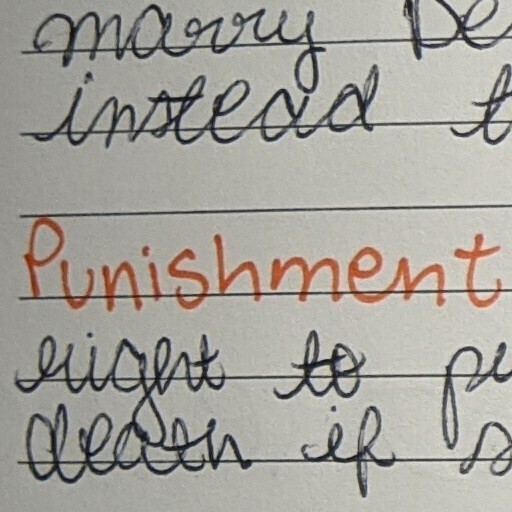 marry De
instead t
Punishment
right to pu
death if s